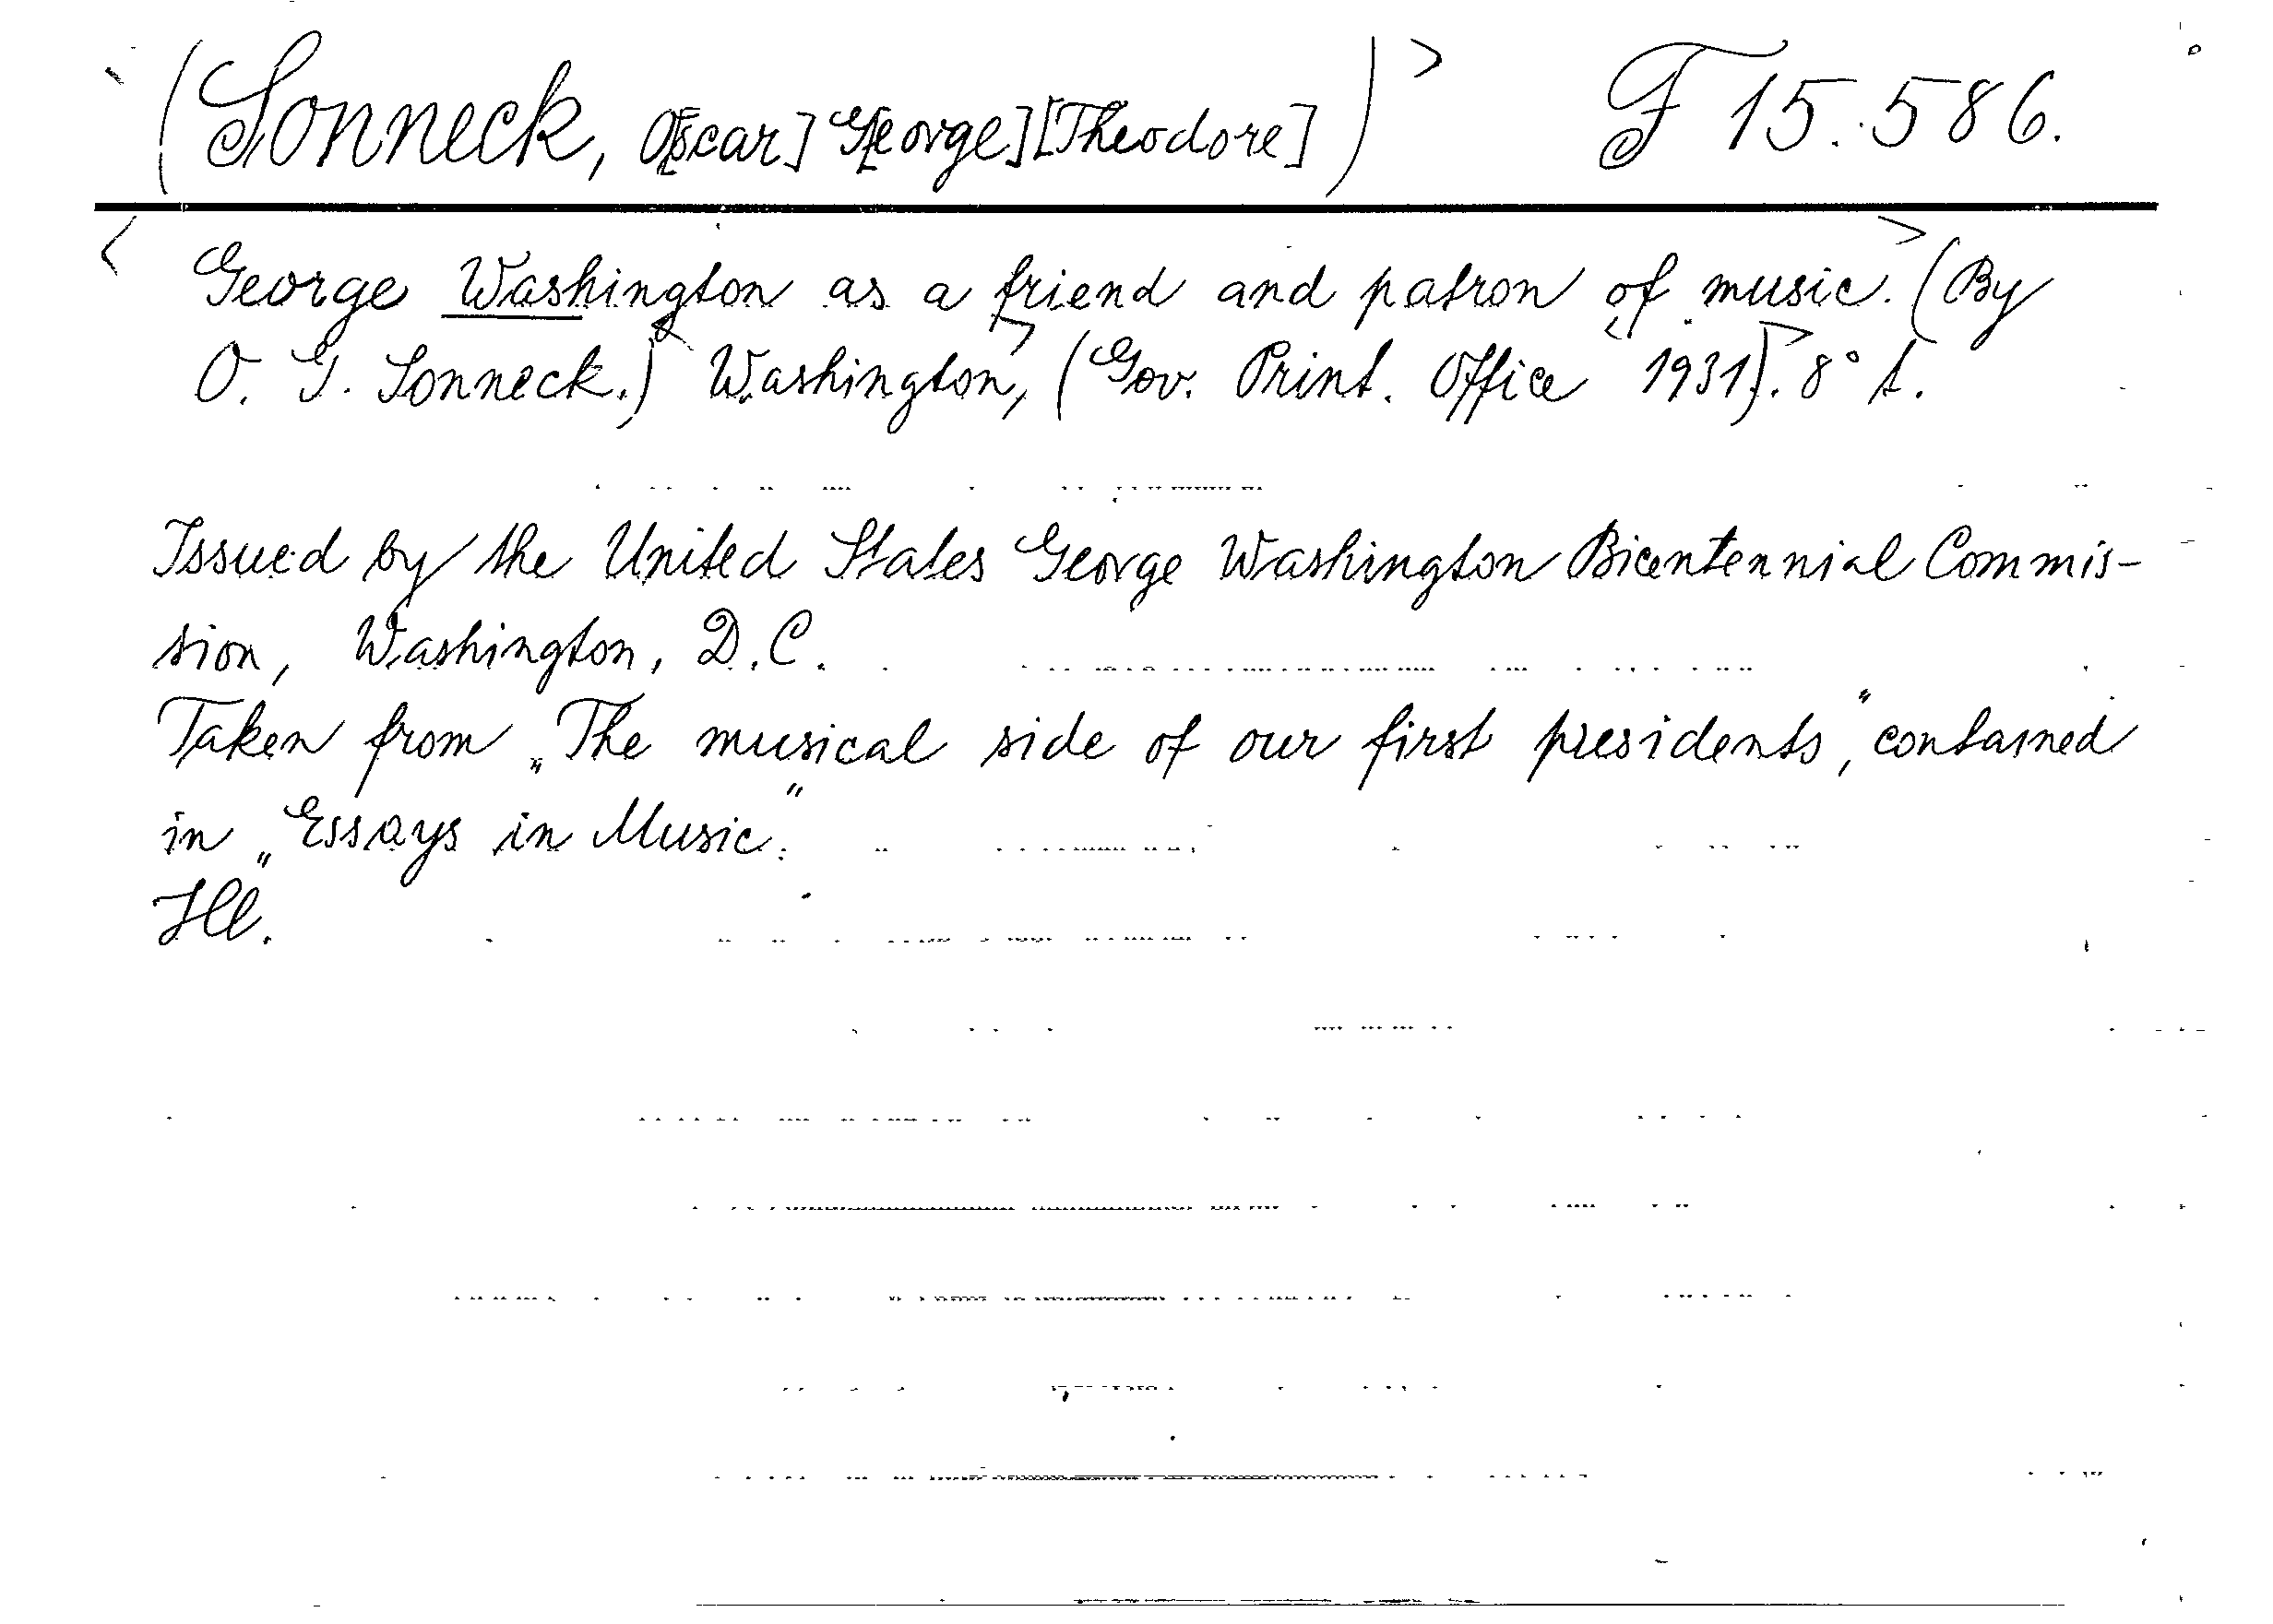 (Sonneck, O[scar] G[eorge] [Theodore]) > F 15.586.
< George Washington as a friend and patron of music. > (By
O. G. Sonneck.) < Washington, > (Gov. Print. Office < 1931). > 8° t.
Issued by the United States George Washington Bicentennial Commis-
sion, Washington, D.C.
Taken from „The musical side of our first presidents,“ contained
in „Essays in Music.“
Ill.